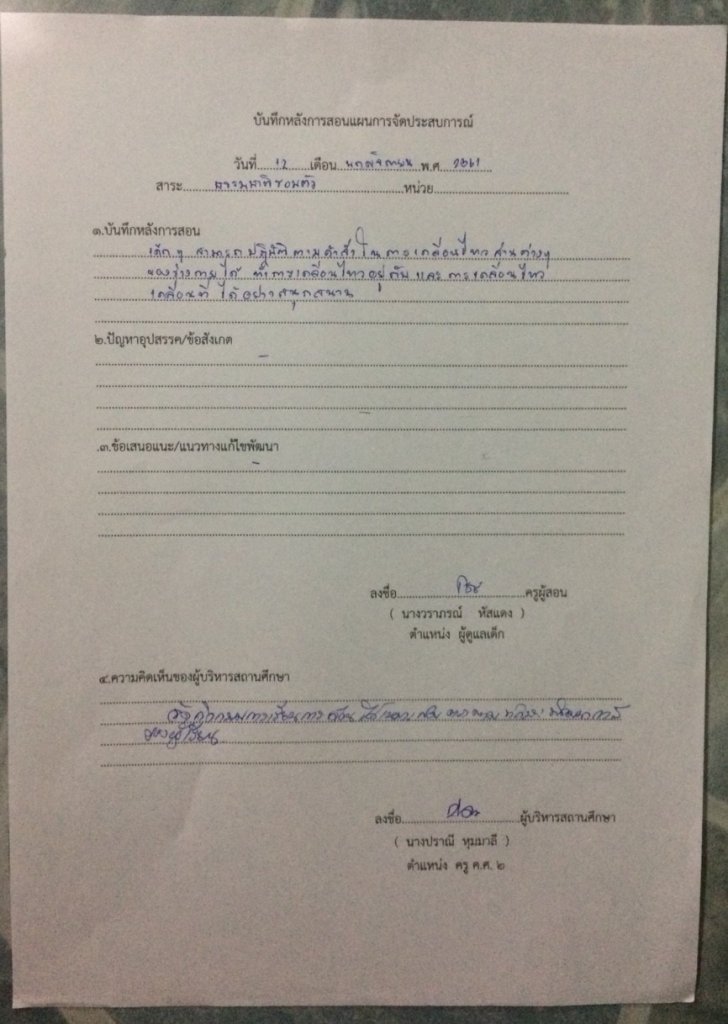 บันทึกหลังการสอนแผนการจัดประสบการณ์
วันที่ 12 เดือน พฤศจิกายน พ.ศ 2561
สาระ ธรรมชาติรอบตัว หน่วย
๑.บันทึกหลังการสอน
เด็กๆ สามารถปฏิบัติตามคำสั่งในการเคลื่อนไหวส่วนต่างๆ
ของร่างกายได้ ทั้งการเคลื่อนไหวอยู่กับ และการเคลื่อนไหว
เคลื่อนที่ได้อย่างสนุกสนาน
๒.ปัญหาอุปสรรค/ข้อสังเกต
-
-
.๓.ข้อเสนอแนะ/แนวทางแก้ไขพัฒนา
-
ลงชื่อ ครูผู้สอน
( นางวราภรณ์ หัสแดง )
ตำแหน่ง ผู้ดูแลเด็ก
๔.ความคิดเห็นของผู้บริหารสถานศึกษา
จัดกิจกรรมการเรียนการสอน
ของผู้เรียน
ลงชื่อ ผู้บริหารสถานศึกษา
( นางปราณี หุมมาลี )
ตำแหน่ง ครู ค.ศ. ๒